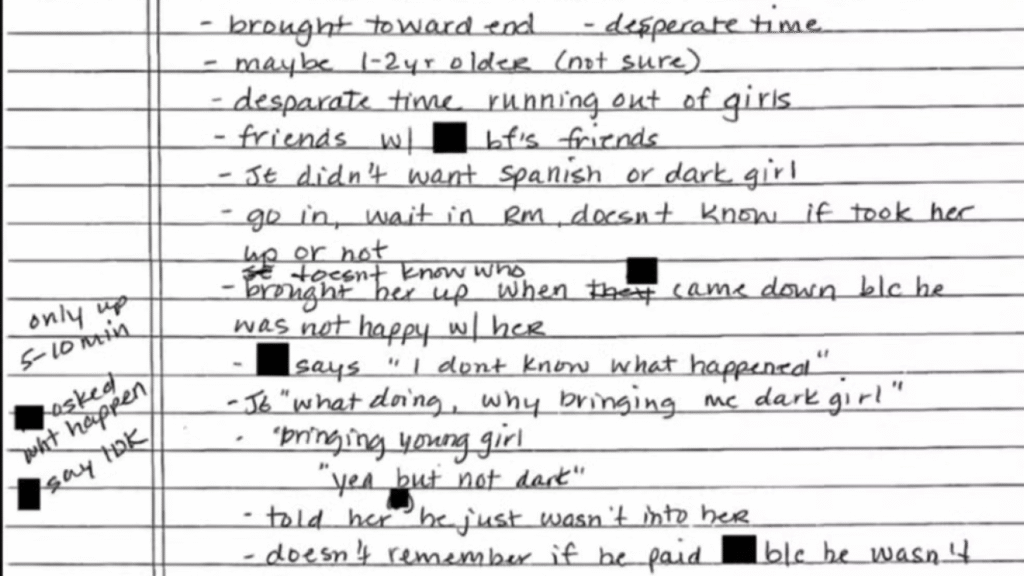 - brought toward end - desperate time
- maybe 1-2yr older (not sure)
- desparate time running out of girls
- friends w/ bf's friends
- JE didn't want Spanish or dark girl
- go in, wait in Rm, doesnt know if took her
up or not
doesnt know who
- brought her up when they came down b/c he
was not happy w/ her
only up
5-10 min
- says "I dont know what happened"
asked
wht happen
say IDK
- JE "what doing, why bringing me dark girl"
"bringing young girl
"yea but not dark"
- told her he just wasn't into her
- doesn't remember if he paid b/c he wasn't